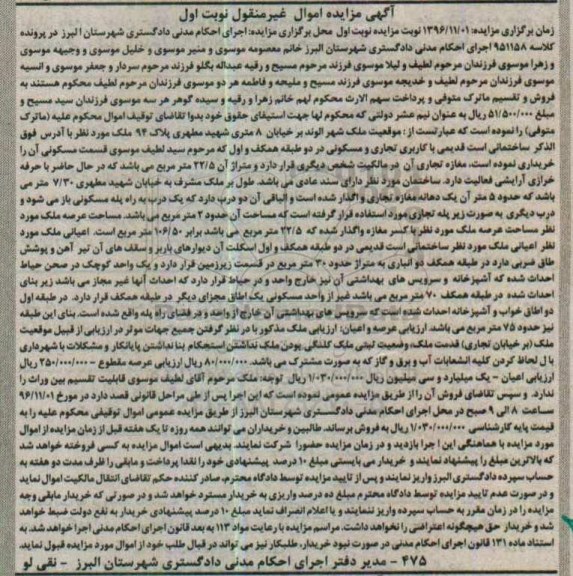 آگهی مزایده اموال غیرمنقول نوبت اول
زمان برگزاری مزایده: ۱۳۹۶/۱۱/۰۱ نوبت مزایده نوبت اول محل برگزاری مزایده: اجرای احکام مدنی دادگستری شهرستان البرز در پرونده
کلاسه ۹۵۱۱۵۸ اجرای احکام مدنی دادگستری شهرستان البرز خانم معصومه موسوی و منیر موسوی و خلیل موسوی و وجیهه موسوی
و زهرا موسوی فرزندان مرحوم لطیف و لیلا موسوی فرزند مرحوم مسیح و رقیه عبداله بگلو فرزند مرحوم سردار و جعفر موسوی و انسیه
موسوی فرزندان مرحوم لطیف و خدیجه موسوی فرزند مسیح و ملیحه و فاطمه هر دو موسوی فرزندان مرحوم لطیف محکوم هستند به
فروش و تقسیم ماترک متوفی و پرداخت سهم الارث محکوم لهم خانم زهرا و رقیه و سیده گوهر هر سه موسوی فرزندان سید مسیح و
مبلغ ۵۱/۵۰۰/۰۰۰ ریال به عنوان نیم عشر دولتی که محکوم لها جهت استیفای حقوق خود بدوا تقاضای توقیف اموال محکوم علیه (ماترک
متوفی) را نموده است که عبارتست از : موقعیت ملک شهر الوند بر خیابان ۸ متری شهید مطهری پلاک ۹۴ ملک مورد نظر با آدرس فوق
الذکر ساختمانی است قدیمی با کاربری تجاری و مسکونی در دو طبقه همکف و اول که مرحوم سید لطیف موسوی قسمت مسکونی آن را
خریداری نموده است، مغازه تجاری آن در مالکیت شخص دیگری قرار دارد و متراژ آن ۲۲/۵ متر مربع می باشد که در حال حاضر با حرفه
خرازی آرایشی فعالیت دارد. ساختمان مورد نظر دارای سند عادی می باشد. طول بر ملک مشرف به خیابان شهید مطهری ۷/۳۰ متر می
باشد که حدود ۵ متر آن یک دهانه مغازه تجاری و اگذار شده است و الباقی آن دو درب دارد که یک درب به راه پله مسکونی باز می شود و
درب دیگری به صورت زیر پله تجاری مورد استفاده قرار گرفته است که مساحت آن حدود ۲ متر مربع می باشد. مساحت عرصه ملک مورد
نظر مساحت عرصه ملک مورد نظر با کسر مغازه واگذار شده که ۲۲/۵ متر مربع می باشد برابر ۱۰۶/۵۰ متر مربع است. اعیانی ملک مورد
نظر اعیانی ملک مورد نظر ساختمانی است قدیمی در دو طبقه همکف و اول اسکلت آن دیوارهای باربر و سقف های آن تیر آهن و پوشش
طاق ضربی دارد در طبقه همکف دو انباری به متراژ حدود ۳۰ متر مربع در قسمت زیرزمین قرار دارد و یک واحد کوچک در صحن حیاط
احداث شده که آشپزخانه و سرویس های بهداشتی آن نیز خارج واحد و در حیاط قرار دارد که احداث آنها غیر مجاز می باشد زیر بنای
احداث شده در طبقه همکف ۷۰ متر مربع می باشد غیر از واحد مسکونی یک اطاق مجزای دیگر در طبقه همکف قرار دارد. در طبقه اول
دو اطاق خواب و آشپزخانه احداث شده است که سرویس های بهداشتی آن خارج از واحد و در فضای راه پله واقع شده است. بنای این طبقه
نیز حدود ۷۵ متر مربع می باشد. ارزیابی عرصه و اعیان: ارزیابی ملک مذکور با در نظر گرفتن جمیع جهات موثر در ارزیابی از قبیل موقعیت
ملک (بر خیابان تجاری) قدمت ملک، وضعیت ثبتی ملک کلنگی بودن ملک نداشتن استحکام بنا نداشتن پایانکار و مشکلات با شهرداری
با ل لحاظ کردن کلیه انشعابات آب و برق و گاز که به صورت مشترک می باشد. ۸۰/۰۰۰/۰۰۰ ریال ارزیابی عرصه مقطوع - ۲۵۰/۰۰۰/۰۰۰ ریال
ارزیابی اعیان - یک میلیارد و سی میلیون ریال ۱/۰۳۰/۰۰۰/۰۰۰ ریال توجه: ملک مرحوم آقای لطیف موسوی قابلیت تقسیم بین وراث را
ندارد. و سپس تقاضای فروش آن را از طریق مزایده عمومی نموده است که این اجرا پس از طی مراحل قانونی قصد دارد در مورخ ۹۶/۱۱/۰۱
ساعت ۸ الی ۹ صبح در محل اجرای احکام مدنی دادگستری شهرستان البرز از طریق مزایده عمومی اموال توقیفی محکوم علیه را به
قیمت پایه کارشناسی ۱/۰۳۰/۰۰۰/۰۰۰ ریال به فروش برساند. طالبین و خریداران می توانند همه روزه تا یک هفته قبل از زمان مزایده از اموال
مورد مزایده با هماهنگی این ا جرا بازدید و در زمان مزایده حضورا شرکت نمایند. بدیهی است اموال مزایده به کسی فروخته خواهد شد
که بالاترین مبلغ را پیشنهاد نمایند و خریدار می بایستی مبلغ ۱۰ درصد پیشنهادی خود را نقدا پرداخت و مابقی را ظرف مدت دو هفته به
حساب سپرده دادگستری البرز واریز نمایند و پس از تایید مزایده توسط دادگاه محترم صادر کننده حکم تقاضای انتقال مالکیت اموال نماید
و در صورت عدم تایید مزایده توسط دادگاه محترم مبلغ ده درصد واریزی به خریدار مسترد خواهد شد و در صورتی که خریدار مابقی وجه
مزایده را در زمان مقرر به حساب سپرده واریز ننمایند و یا اعلام انصراف نماید مبلغ ۱۰ درصد پیشنهادی خریدار به نفع دولت ضبط خواهد
شد و خریدار حق هیچگونه اعتراضی را نخواهد داشت. مراسم مزایده با رعایت مواد ۱۱۳ به بعد قانون اجرای احکام مدنی اجرا خواهد شد. به
استناد ماده ۱۳۱ قانون اجرای احکام مدنی در صورت نبود خریدار، طلبکار نیز می تواند در قبال طلب خود از اموال مورد مزایده قبول نماید.
۴۷۵ - مدیر دفتر اجرای احکام مدنی دادگستری شهرستان البرز - نقی لو